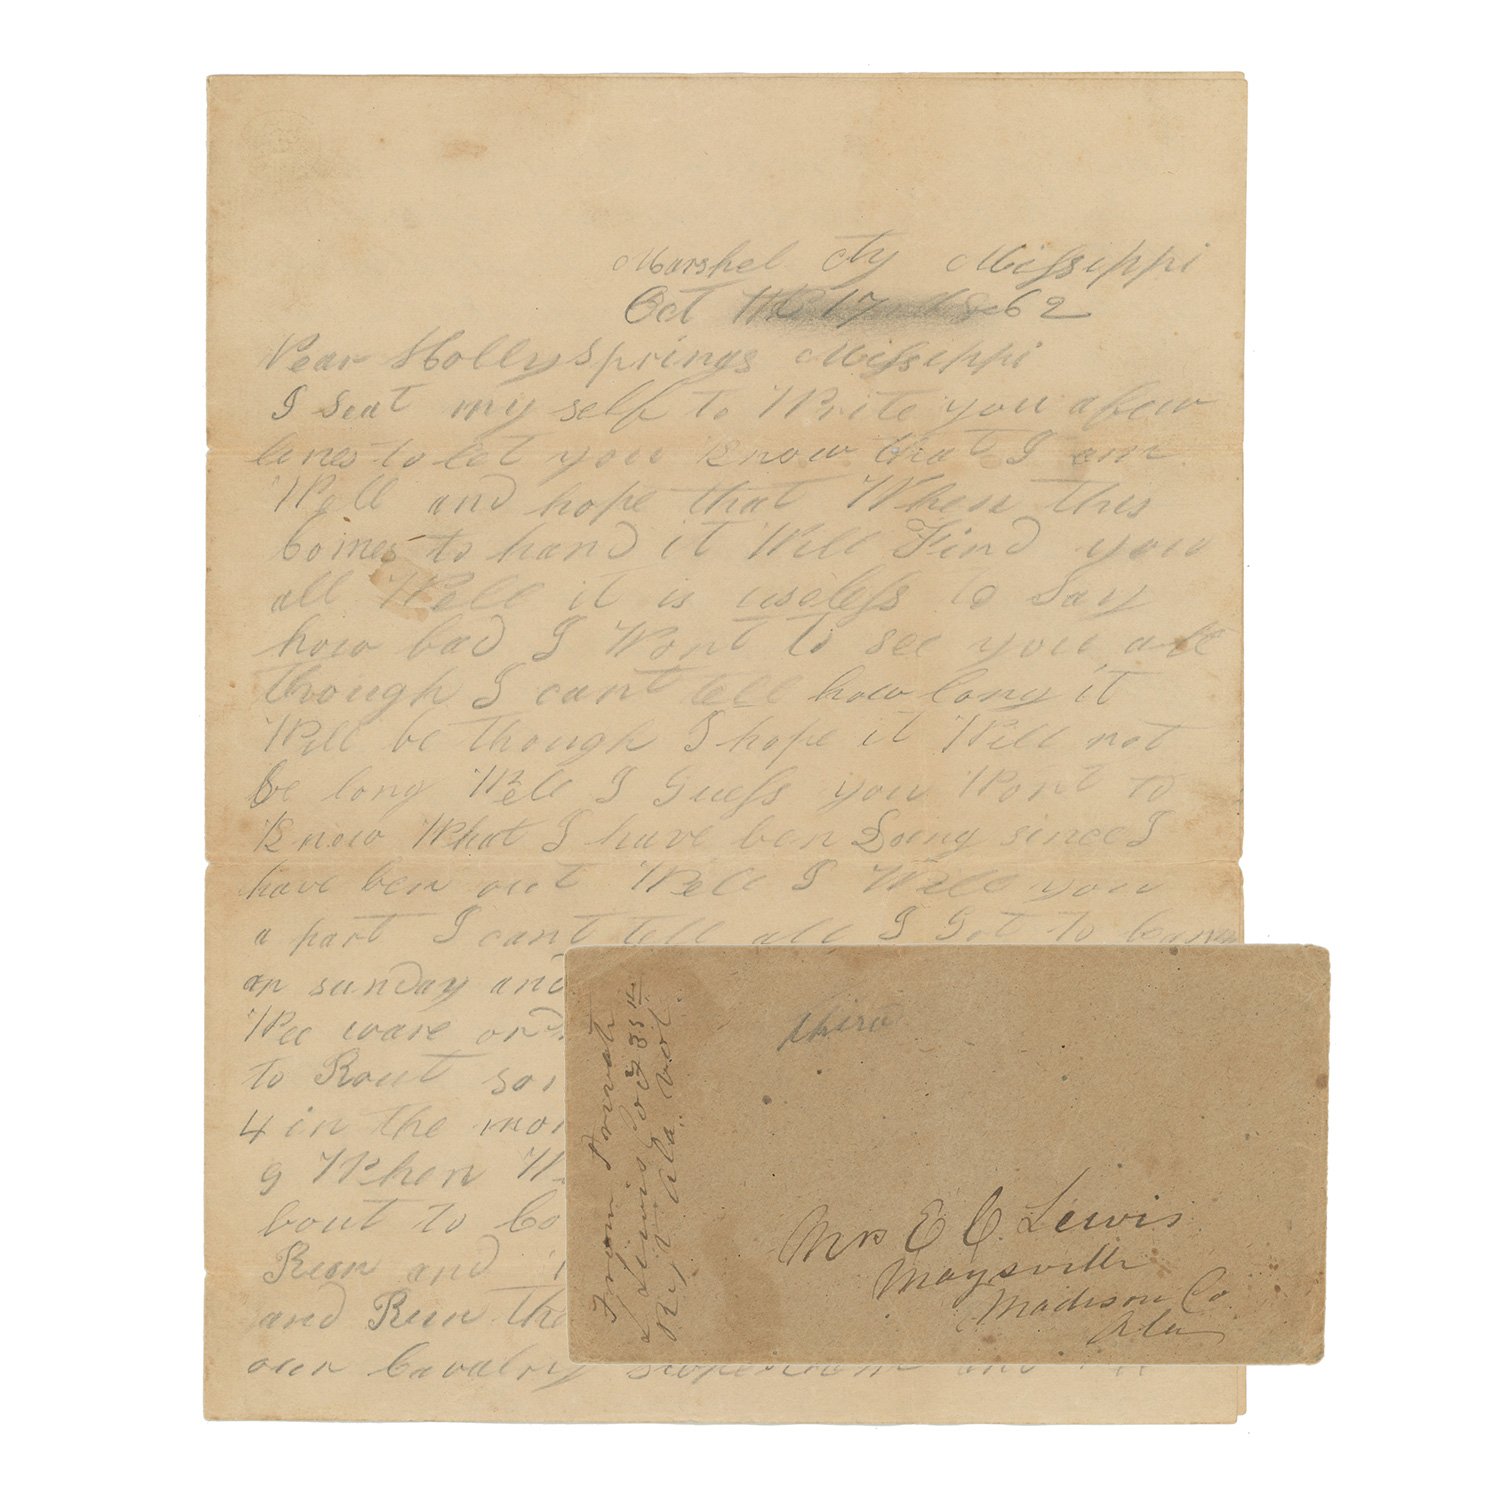 Marshel cty Missippi
Oct 17 1862
Near Holly Springs Missippi
I Seat my self to Write you afew
lines to let you Know that I am
Well and hope that When this
Comes to hand it Will Find you
all Well it is useless to Say
how bad I Want to see you all
though I cant tell how long it
Will be though I hope it Will not
be long Well I Guess you Want to
Know What I have ben Doing since I
have ben out Well I Will you
a part I cant tell all I Got to
on sunday and
Wee ware
to Rout
4 in the
9 When
bout to
Rear and
and Run
our Cavalry and
From Privat
Lewis Co 35th
Regt Ala. Vol.
third
Mrs E C. Lewis
Maysville
Madison Co
Ala